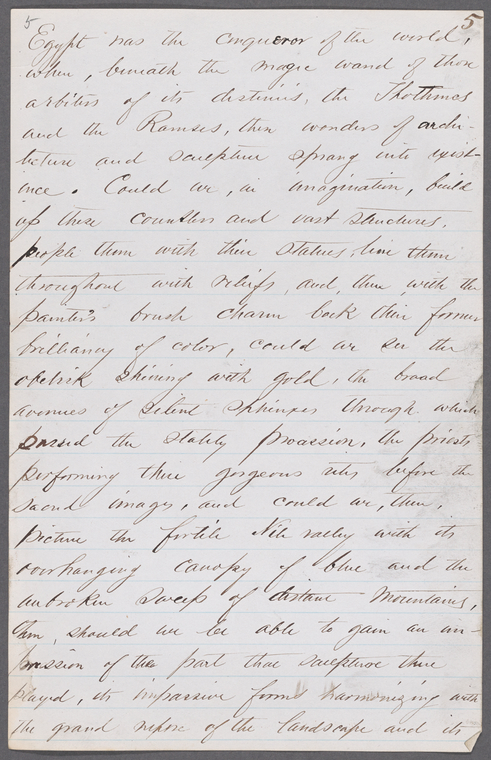 5 5
Egypt was the conqueror of the world,
when, beneath the magic wand of those
arbiters of its destinies, the Thothmes
and the Ramses, these wonders of archi-
tecture and sculpture sprang into exist-
ence. Could we, in imagination, build
up these countless and vast structures,
people them with their statues, line them
throughout with reliefs, and, then, with the
painter's brush charm back their former
brilliancy of color, could we see the
obelisk shining with gold, the broad
avenues of silent sphinxes through which
passed the stately procession, the priests
performing their gorgeous rites before the
sacred images, and could we, then,
picture the fertile Nile valley with its
overhanging canopy of blue and the
unbroken sweep of distant mountains,
then, should we be able to gain an im-
pression of the part that sculpture there
played, its impassive forms harmonizing with
the grand repose of the landscape and its